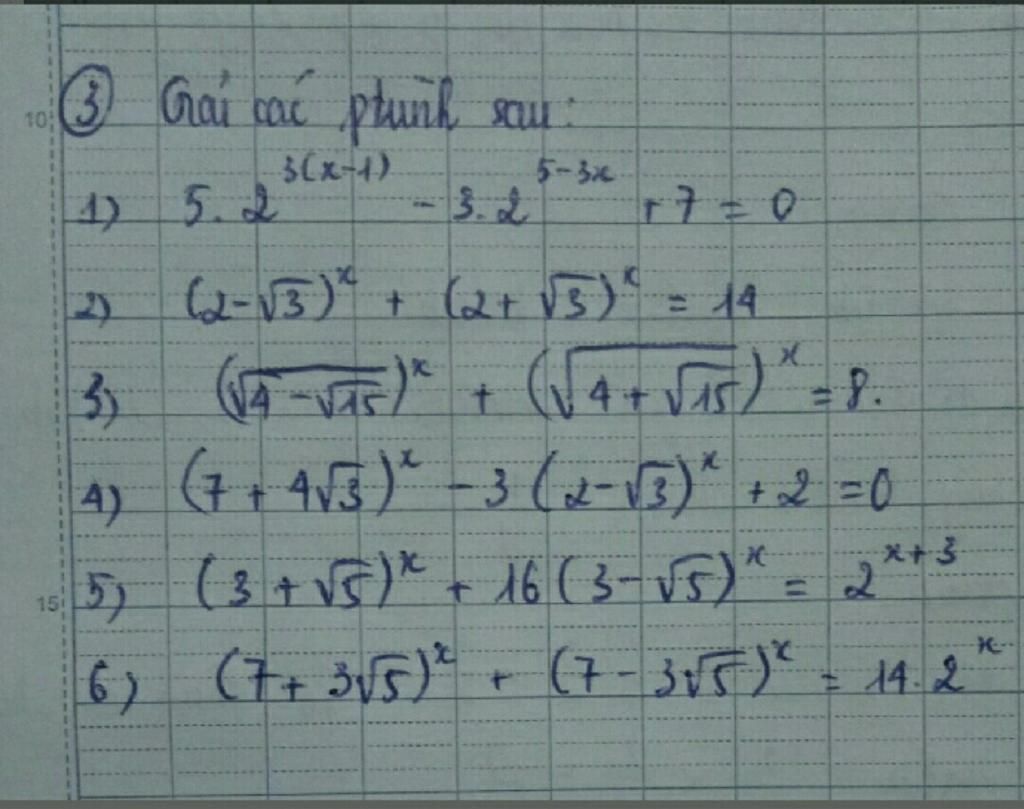 10
③ Giải các ptrình sau:
1) 5.2^{3(x-1)} - 3.2^{5-3x} + 7 = 0
2) (2-√3)^x + (2+√3)^x = 14
3) (√(4-√15))^x + (√(4+√15))^x = 8.
4) (7+4√3)^x - 3(2-√3)^x + 2 = 0
15
5) (3+√5)^x + 16(3-√5)^x = 2^{x+3}
6) (7+3√5)^x + (7-3√5)^x = 14.2^x